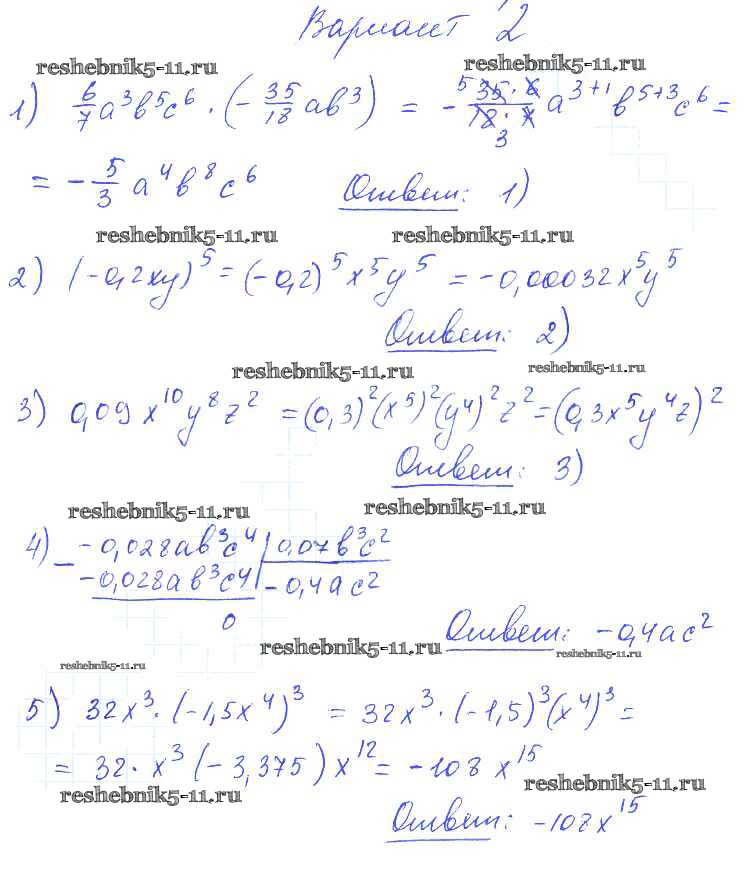 Вариант 2
reshebnik5-11.ru reshebnik5-11.ru
1) 6/7 a³b⁵c⁶ · (- 35/18 ab³) = - 5 35·6 / 18·7 3 a³⁺¹ b⁵⁺³ c⁶ =
= - 5/3 a⁴b⁸c⁶ Ответ: 1)
reshebnik5-11.ru reshebnik5-11.ru
2) (-0,2xy)⁵ = (-0,2)⁵x⁵y⁵ = -0,00032x⁵y⁵
Ответ: 2)
reshebnik5-11.ru reshebnik5-11.ru
3) 0,09x¹⁰y⁸z² = (0,3)²(x⁵)²(y⁴)²z² = (0,3x⁵y⁴z)²
Ответ: 3)
reshebnik5-11.ru reshebnik5-11.ru
4) - -0,028ab³c⁴ | 0,07b³c²
-0,028ab³c⁴ | -0,4ac²
0
Ответ: -0,4ac²
reshebnik5-11.ru
reshebnik5-11.ru reshebnik5-11.ru
5) 32x³·(-1,5x⁴)³ = 32x³·(-1,5)³(x⁴)³ =
= 32·x³(-3,375)x¹² = -108x¹⁵
reshebnik5-11.ru reshebnik5-11.ru
Ответ: -108x¹⁵